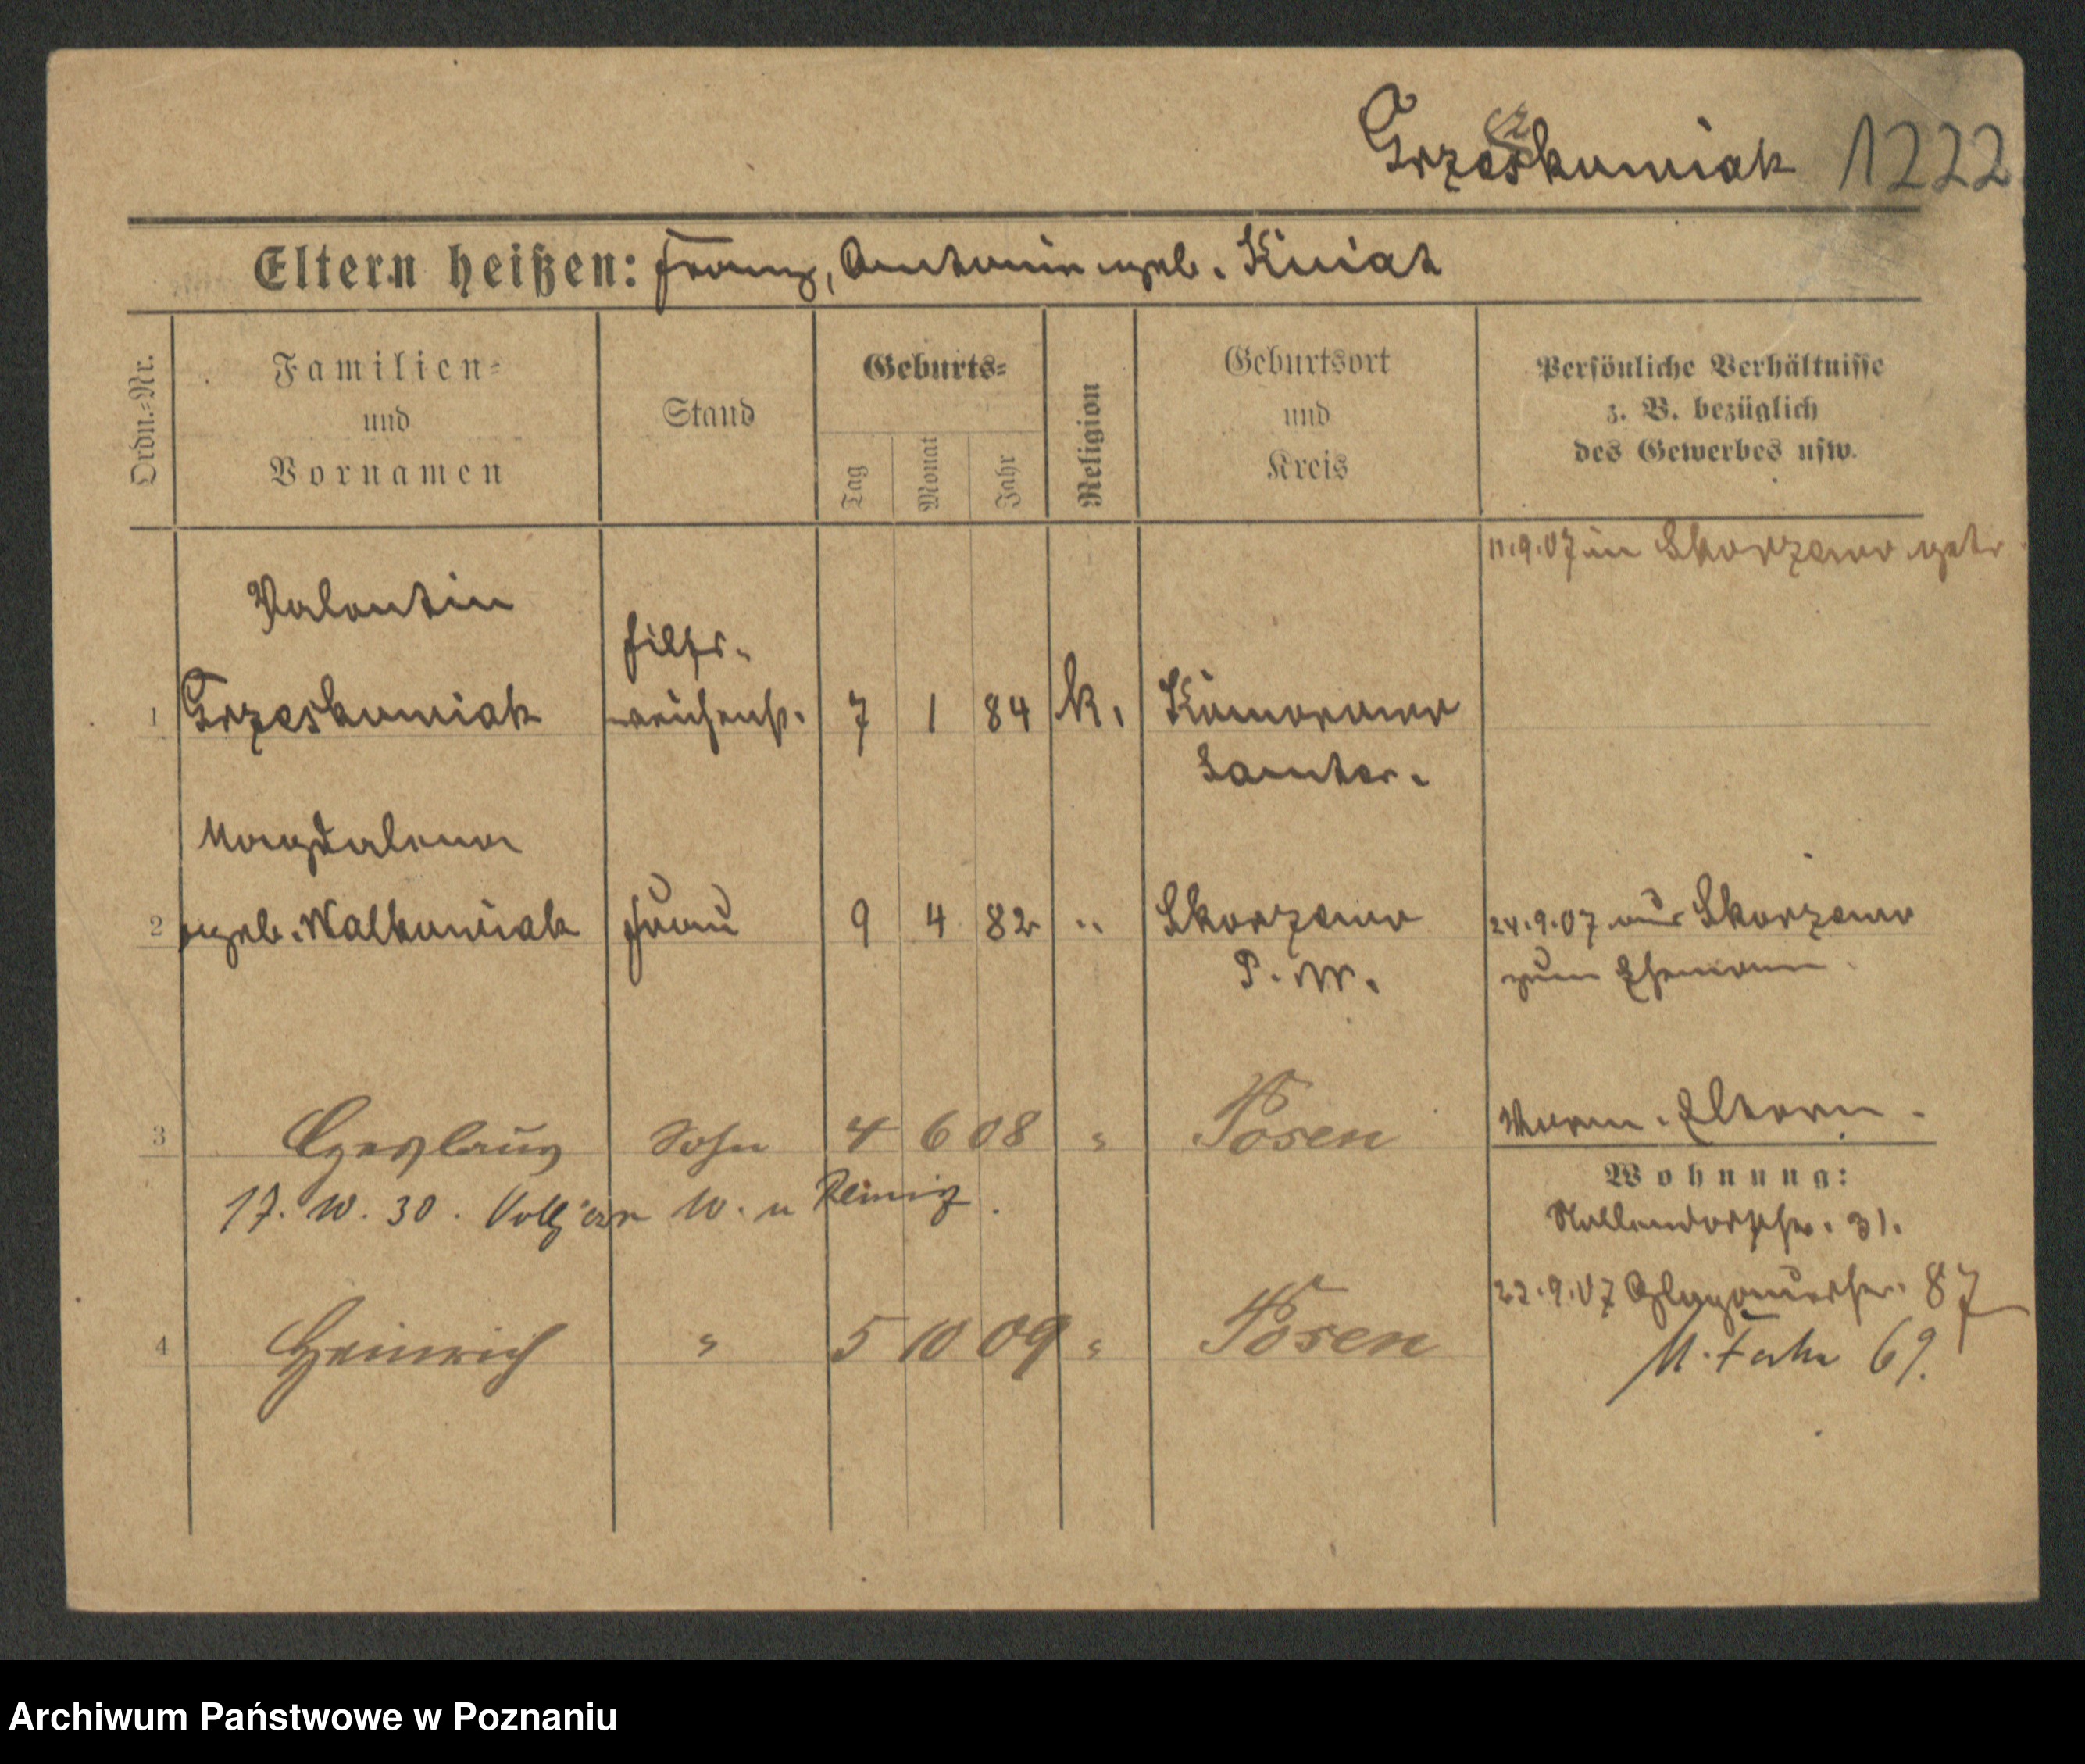 Grzeskowiak 1222
cz
Eltern heißen: Franz, Antonie geb. Kwiat
Ordn.-Nr.
Familien-
und
Vornamen
Stand
Geburts-
Tag
Monat
Jahr
Religion
Geburtsort
und
Kreis
Persönliche Verhältnisse
z. B. bezüglich
des Gewerbes usw.
11.9.07 in Skorzewo getr
Valentin
Hilfs-
1 Grzeskowiak weichenst. 7 1 84 k.
Samter.
Magdalena
2 geb. Walkowiak Frau 9 4 82 " Skorzewo 24.9.07 aus Skorzewo
P. W. zum Ehemann
3 Czeslaus Sohn 4 6 08 " Posen Eltern.
Wohnung:
17. W. 30. W. u
Nollendorfstr. 31.
22.9.07 Glogauerstr. 87
4 Heinrich " 5 10 09 " Posen
69.
Archiwum Państwowe w Poznaniu